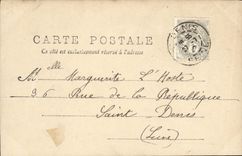 CARTE POSTALE
Ce côté est exclusivement réservé à l'adresse
Melle Marguerite L'Hoste
36 Rue de la République
Saint Denis
(Seine)